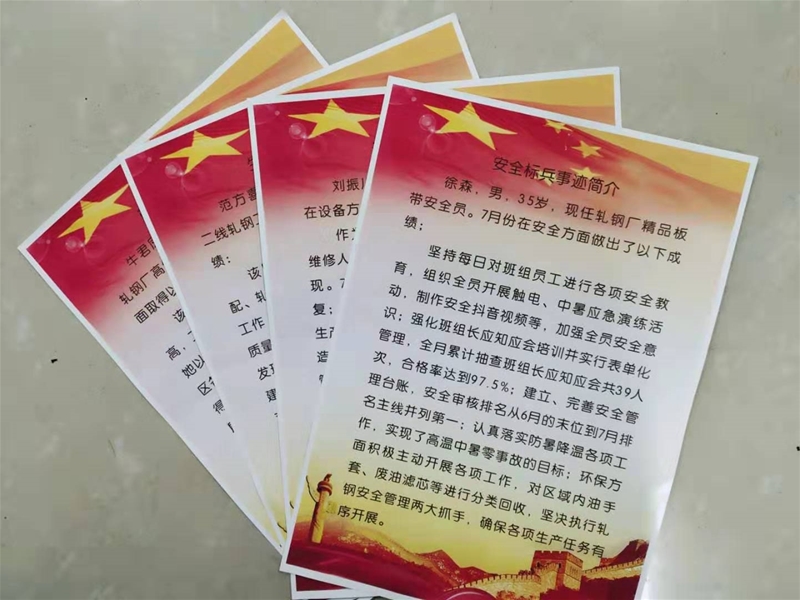 安全标兵事迹简介
徐森，男，35岁，现任轧钢厂精品板
带安全员。7月份在安全方面做出了以下成
绩：
坚持每日对班组员工进行各项安全教
育，组织全员开展触电、中暑应急演练活
动，制作安全抖音视频等，加强全员安全意
识；强化班组长应知应会培训并实行表单化
管理，全月累计抽查班组长应知应会共39人
次，合格率达到97.5%；建立、完善安全管
理台账，安全审核排名从6月的末位到7月排
名主线并列第一；认真落实防暑降温各项工
作，实现了高温中暑零事故的目标；环保方
面积极主动开展各项工作，对区域内油手
套、废油滤芯等进行分类回收，坚决执行轧
钢安全管理两大抓手，确保各项生产任务有
序开展。
刘振
在设备方
作为
维修人
现。7
复；
生产
造
范方喜
二线轧钢工
绩：
该
配、轧
工作
质量
发现
建
牛君
轧钢厂高
面取得以
该
高，
她以
区
得